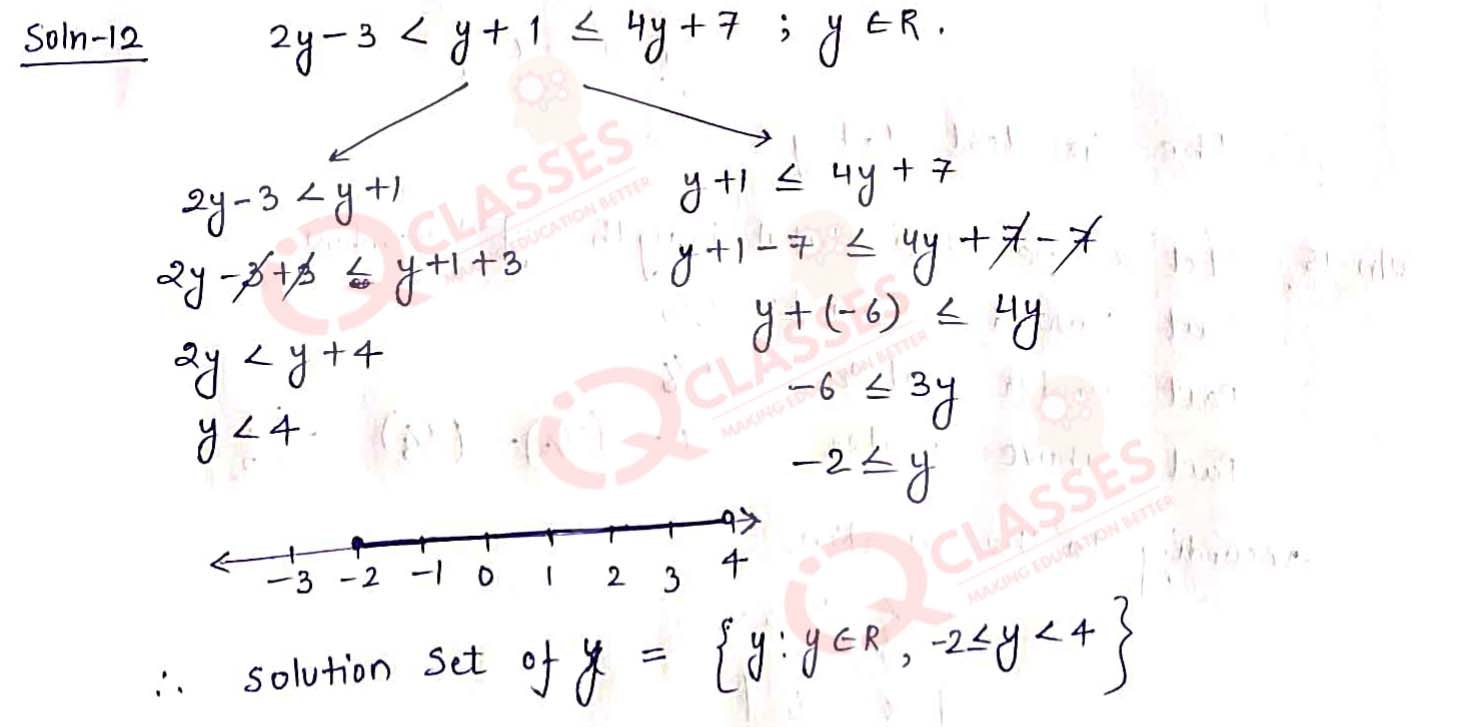 Soln-12 2y-3 < y+1 ≤ 4y+7 ; y ∈ R.
2y-3 < y+1
2y-3+3 ≤ y+1+3
2y < y+4
y < 4
y+1 ≤ 4y+7
y+1-7 ≤ 4y+7-7
y+(-6) ≤ 4y
-6 ≤ 3y
-2 ≤ y
-3 -2 -1 0 1 2 3 4
∴ solution set of y = {y : y ∈ R, -2 ≤ y < 4}
iQ CLASSES
MAKING EDUCATION BETTER
iQ CLASSES
MAKING EDUCATION BETTER
iQ CLASSES
MAKING EDUCATION BETTER